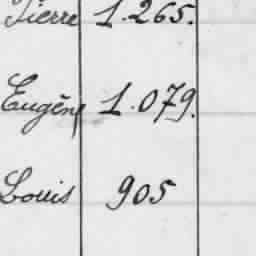 Pierre 1.265.
Eugène 1.079.
Louis 905